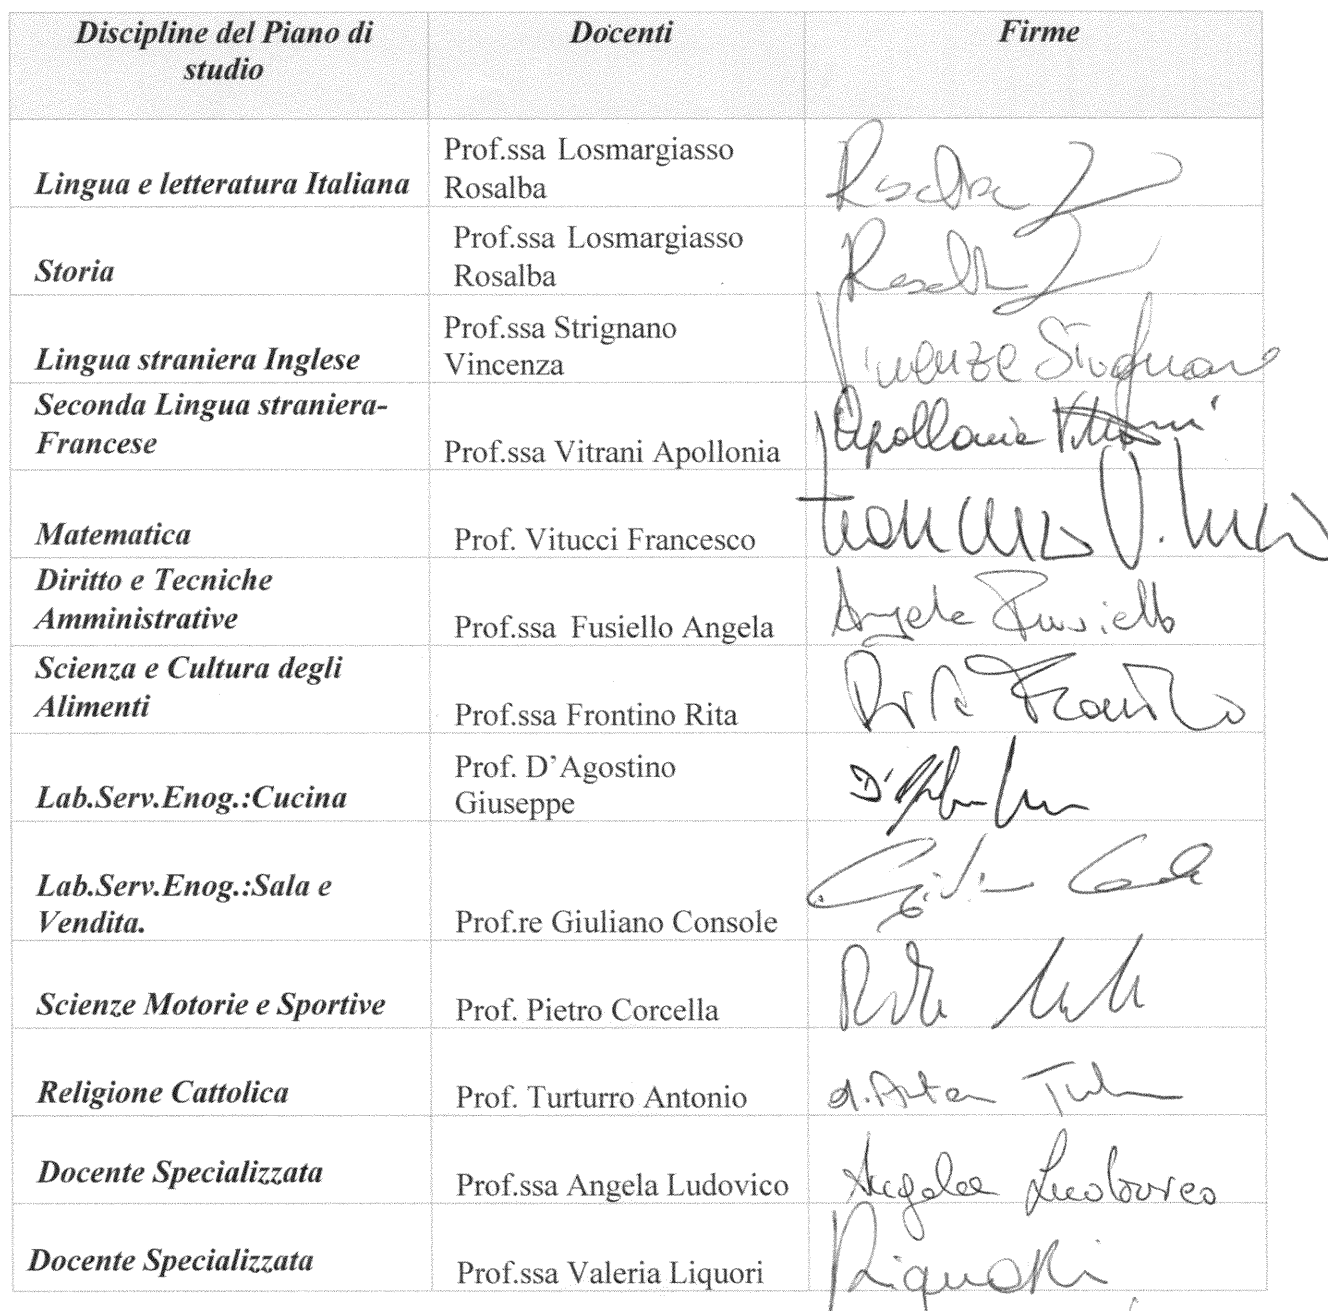 Discipline del Piano di studio Docenti Firme
Lingua e letteratura Italiana Prof.ssa Losmargiasso Rosalba Rosalba
Storia Prof.ssa Losmargiasso Rosalba
Lingua straniera Inglese Prof.ssa Strignano Vincenza
Seconda Lingua straniera-Francese Prof.ssa Vitrani Apollonia Apollonia Vitrani
Matematica Prof. Vitucci Francesco
Diritto e Tecniche Amministrative Prof.ssa Fusiello Angela Angela Fusiello
Scienza e Cultura degli Alimenti Prof.ssa Frontino Rita Rita Frontino
Lab.Serv.Enog.:Cucina Prof. D’Agostino Giuseppe
Lab.Serv.Enog.:Sala e Vendita. Prof.re Giuliano Console
Scienze Motorie e Sportive Prof. Pietro Corcella
Religione Cattolica Prof. Turturro Antonio
Docente Specializzata Prof.ssa Angela Ludovico Angela Ludovico
Docente Specializzata Prof.ssa Valeria Liquori